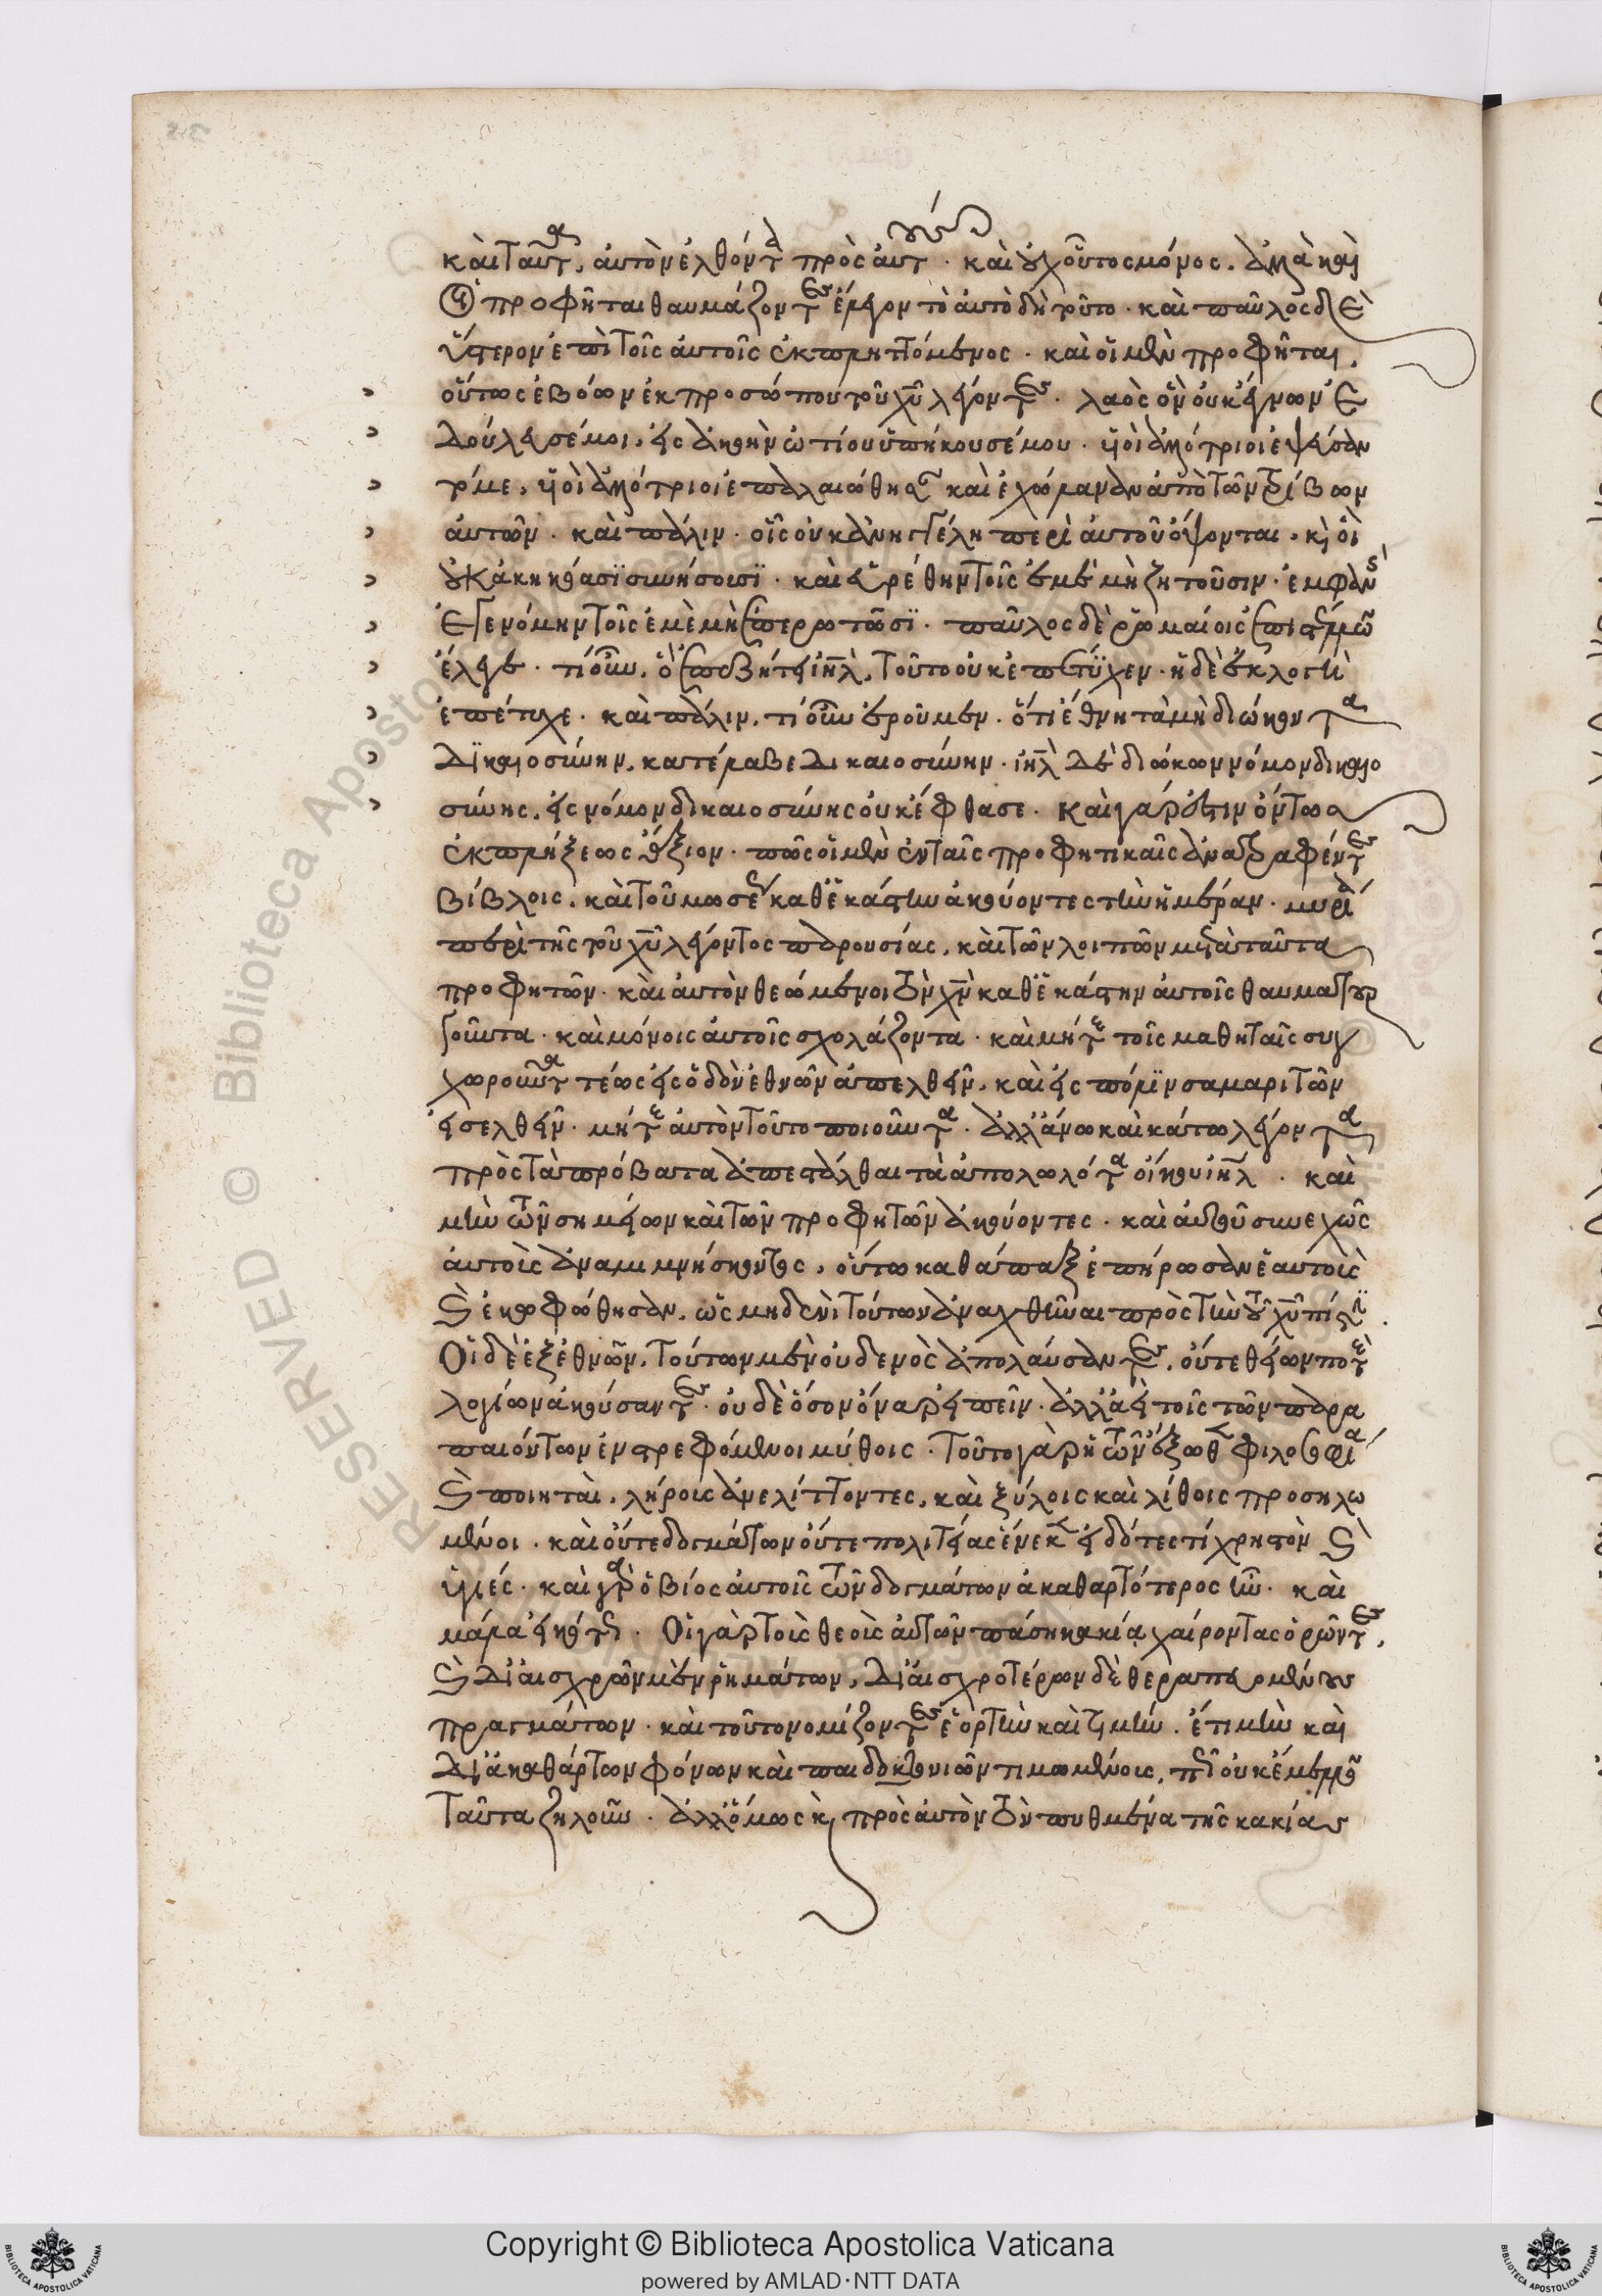 καὶ ταῦτα, αὐτὸν ἐλθόντα πρὸς αὐτούς. καὶ οὐχ οὗτος μόνος. ἀλλὰ καὶ
οἱ προφῆται θαυμάζοντες ἔλεγον τὸ αὐτὸ δὴ τοῦτο. καὶ παῦλος δὲ
ὕστερον ἐπὶ τοῖς αὐτοῖς ἐκπληττόμενος. καὶ οἱ μὲν προφῆται,
οὕτως ἐβόων ἐκ προσώπου τοῦ χ̅υ̅ λέγοντες. λαὸς ὃν οὐκ ἔγνων ἐ
δούλευσέ μοι, εἰς ἀκοὴν ὠτίου ὑπήκουσέ μου. υἱοὶ ἀλλότριοι ἐψεύσαν
τό με, υἱοὶ ἀλλότριοι ἐπαλαιώθησαν καὶ ἐχώλαναν ἀπὸ τῶν τρίβων
αὐτῶν. καὶ πάλιν. οἷς οὐκ ἀνηγγέλη περὶ αὐτοῦ ὄψονται. κ̀ οἳ
οὐκ ἀκηκόασϊ συνήσουσϊ. καὶ εὑρέθην τοῖς ἐμὲ μὴ ζητοῦσιν. ἐμφανὴς
ἐγενόμην τοῖς ἐμὲ μὴ ἐπερωτῶσϊ. παῦλος δὲ ῥωμαίοις ἐπιστέλλων
ἔλεγε. τί οὖν, ὃ ἐπιζητεῖ ι̅η̅λ̅, τοῦτο οὐκ ἐπέτϋχεν. ἡ δὲ ἐκλογὴ
ἐπέτυχε. καὶ πάλιν. τί οὖν ἐροῦμεν. ὅτι ἔθνη τὰ μὴ διώκοντα
δϊκαιοσύνην, κατέλαβε δικαιοσύνην. ι̅η̅λ̅ δὲ διώκων νόμον δικαιο
σύνης, εἰς νόμον δικαιοσύνης οὐκ ἔφθασε. καὶ γάρ ἐστιν ὄντως
ἐκπλήξεως ἄξιον. πῶς οἱ μὲν ἐν ταῖς προφητικαῖς ἀνατραφέντες
βίβλοις, καὶ τοῦ μωσέως καθ' ἑκάστην ἀκούοντες τὴν ἡμέραν. μυρία
περὶ τῆς τοῦ χ̅υ̅ λέγοντος παρουσίας, καὶ τῶν λοιπῶν μετὰ ταῦτα
προφητῶν. καὶ αὐτὸν θεώμενοι τὸν χ̅ν̅ καθ' ἑκάστην αὐτοῖς θαυματουρ
γοῦντα. καὶ μόνοις αὐτοῖς σχολάζοντα. καὶ μήτε τοῖς μαθηταῖς συγ
χωροῦντα τέως εἰς ὁδὸν ἐθνῶν ἀπελθεῖν, καὶ εἰς πόλϊν σαμαριτῶν
εἰσελθεῖν. μήτε αὐτὸν τοῦτο ποιοῦντα. ἀλλ' ἄνω καὶ κάτω λέγοντα
πρὸς τὰ πρόβατα ἀπεστάλθαι τὰ ἀπολωλότα οἴκου ι̅η̅λ̅. καὶ
μὴν τῶν σημείων καὶ τῶν προφητῶν ἀκούοντες. καὶ αὐτοῦ συνεχῶς
αὐτοὺς ἀναμιμνήσκοντος, οὕτω καθάπαξ ἐπήρωσαν ἑαυτοὺς
κ̀ ἐκωφώθησαν, ὡς μηδενὶ τούτων ἀναχθῆναι πρὸς τὴν τοῦ χ̅υ̅ πίστϊν.
Οἱ δὲ ἐξ ἐθνῶν, τούτων μὲν οὐδενὸς ἀπολαύσαντες, οὔτε θείων ποτὲ
λογίων ἀκούσαντες. οὐδὲ ὅσον ὄναρ εἰπεῖν. ἀλλ' ἀεὶ τοῖς τῶν παρα
παιόντων ἐντρεφόμενοι μύθοις. τοῦτο γὰρ ἡ τῶν ἔξωθεν φιλοσοφία
κ̀ ποιηταὶ, λήροις ἀνελίττοντες, καὶ ξύλοις καὶ λίθοις προσηλω
μένοι. καὶ οὔτε δογμάτων οὔτε πολιτείας ἕνεκεν εἰδότες τί χρηστὸν κ̀
ὑγιές. καὶ γὰρ ὁ βίος αὐτοῖς τῶν δογμάτων ἀκαθαρτότερος ἦν. καὶ
μάλα εἰκότως. Οἱ γὰρ τοὺς θεοὺς αὐτῶν πάσῃ κακίᾳ χαίροντας ὁρῶντες,
κ̀ δι' αἰσχρῶν μὲν ῥημάτων, δι' αἰσχροτέρων δὲ θεραπευομένους
πραγμάτων. καὶ τοῦτο νομίζοντες ἑορτὴν καὶ τιμήν. ἔτι μὴν καὶ
δι' ἀκαθάρτων φόνων καὶ παιδοκτονιῶν τιμωμένους, πῶς οὐκ ἔμελλον
ταῦτα ζηλοῦν. ἀλλ' ὅμως κ̀ πρὸς αὐτὸν τὸν πυθμένα τῆς κακίας
Copyright © Biblioteca Apostolica Vaticana
powered by AMLAD·NTT DATA